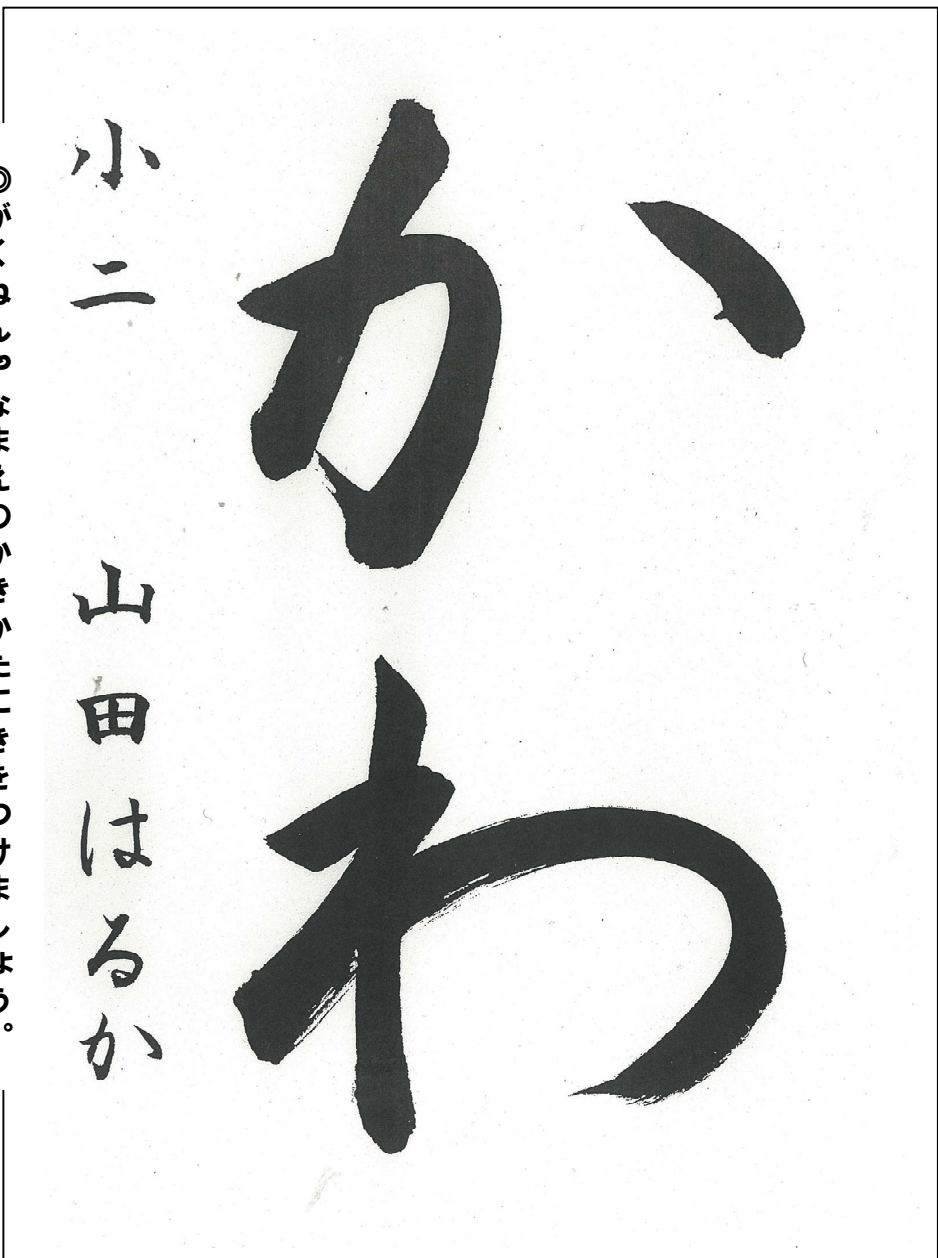 かわ
小二 山田はるか
◎がくねん、なまえのかきかたにきをつけましょう。